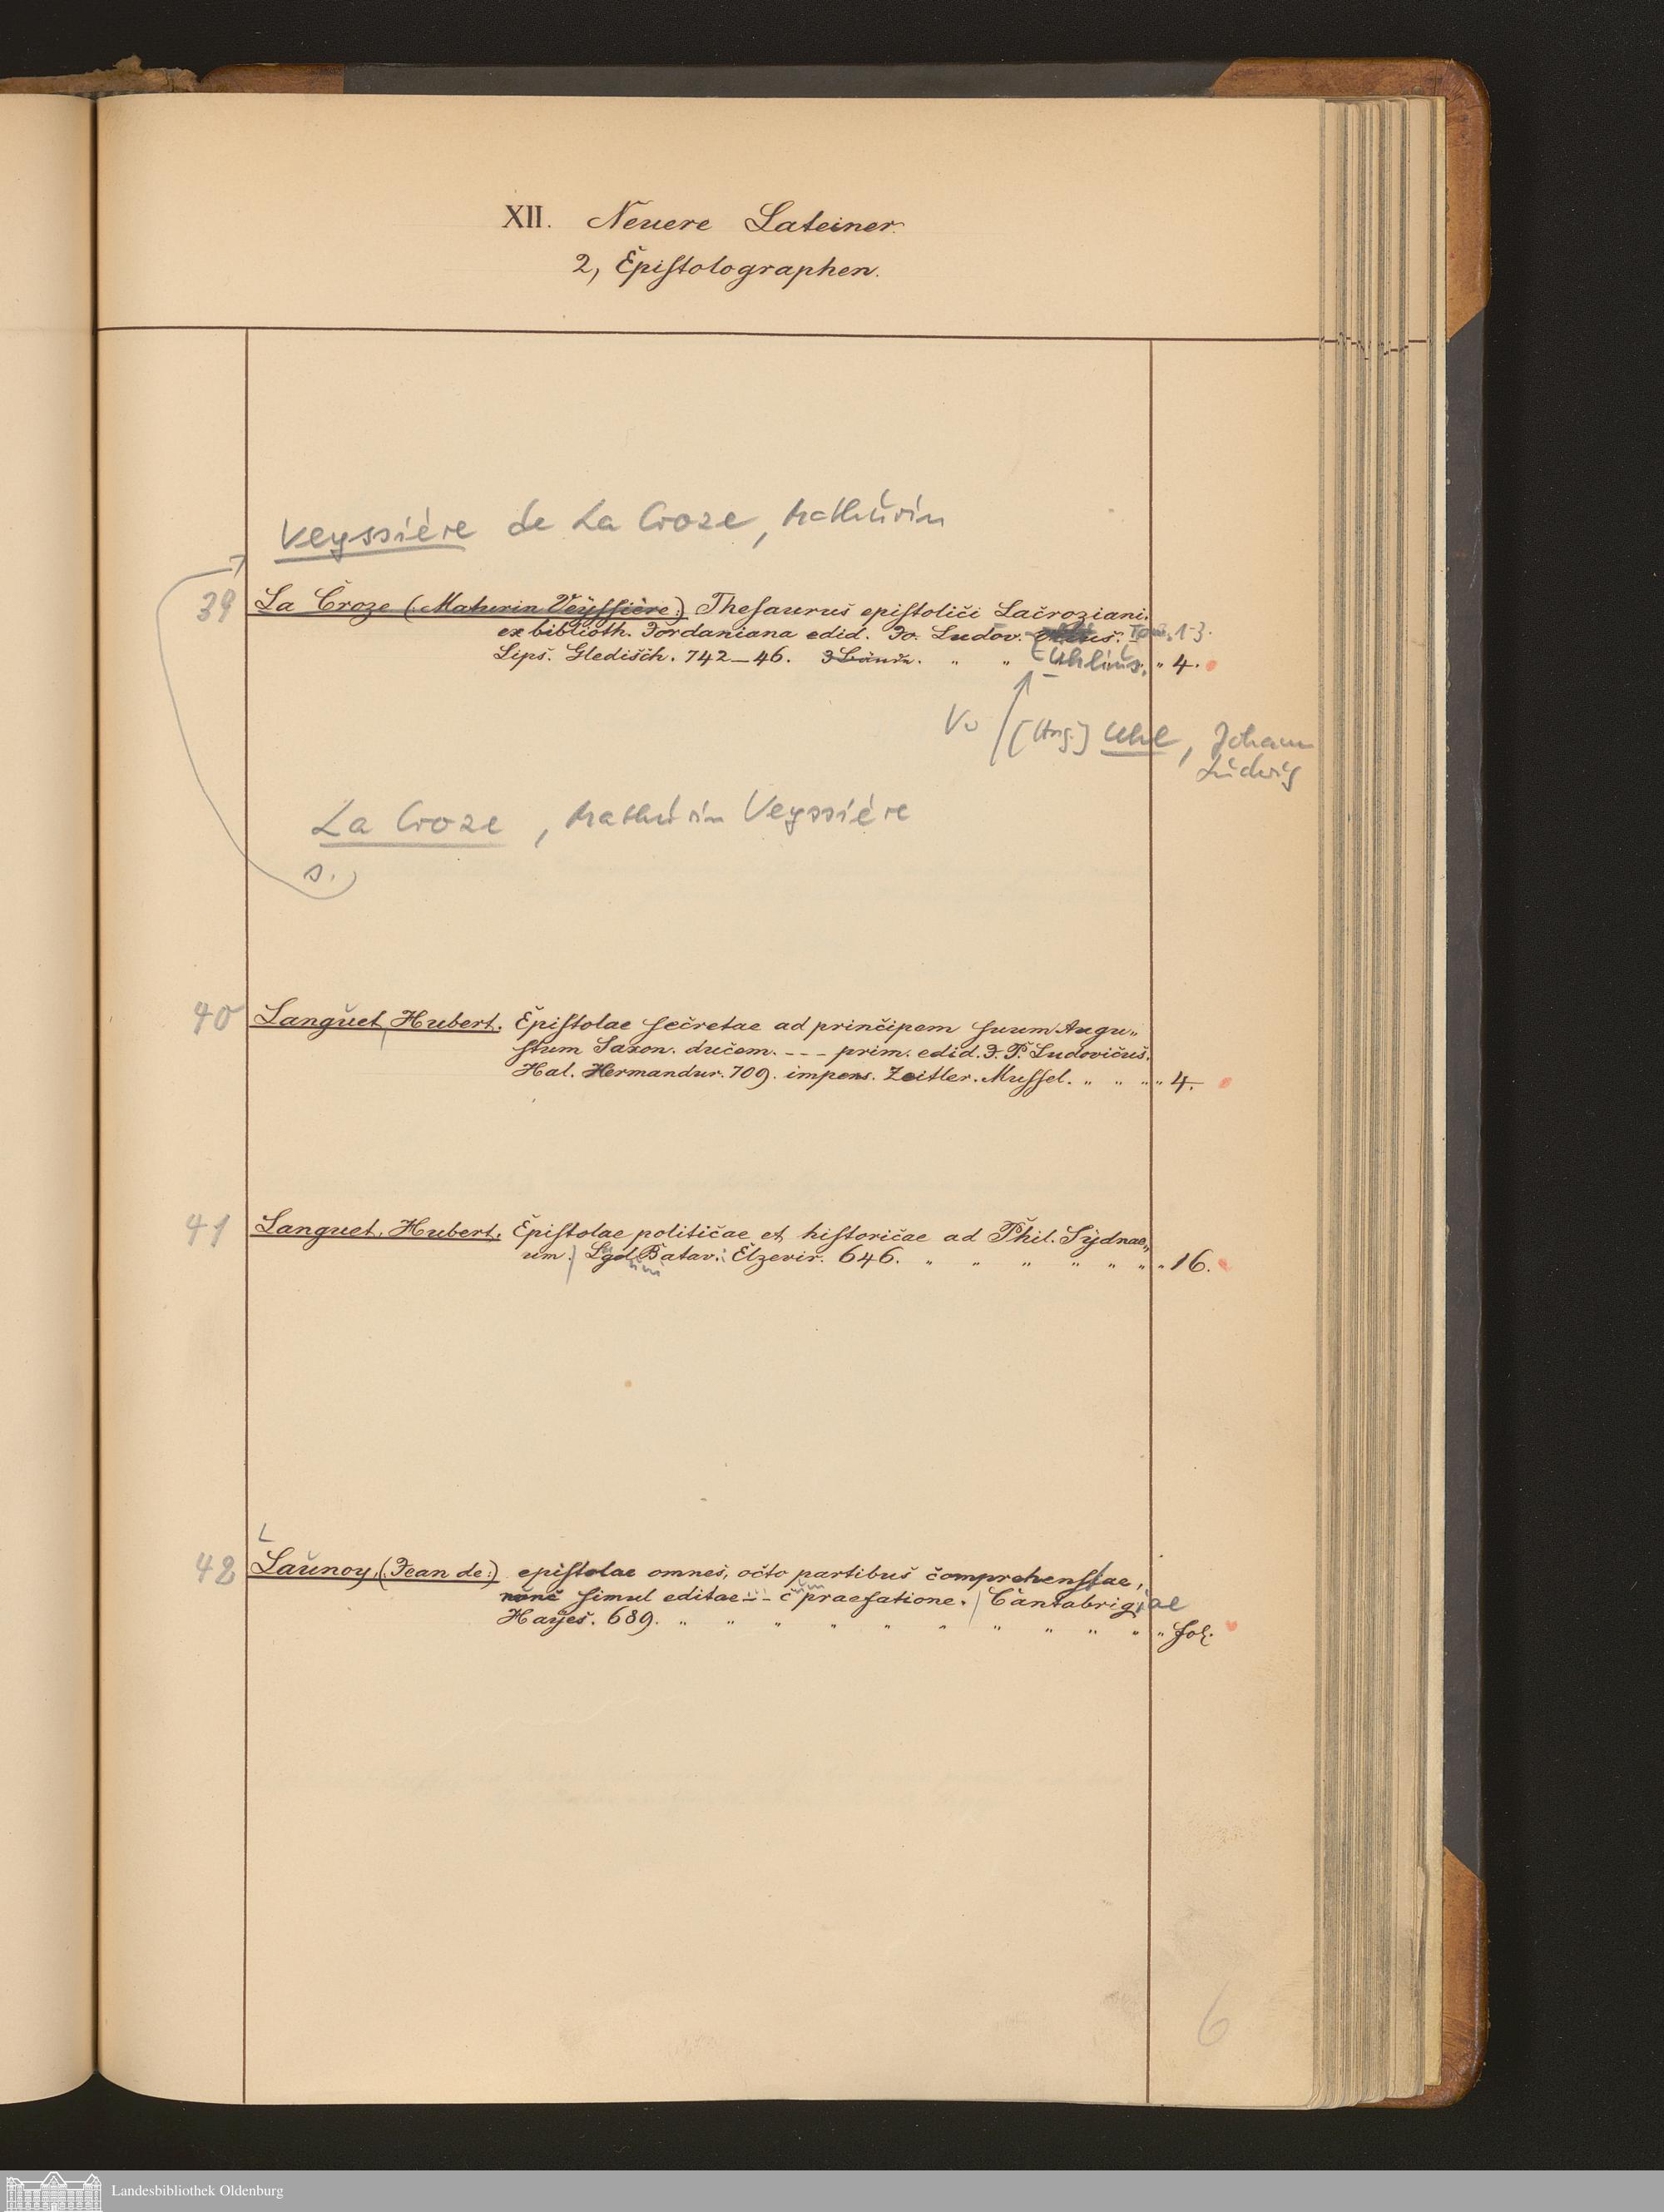 XII. Neuere Lateiner.
2, Epistolographen.
Veyssière de La Croze, Mathurin
39 La Croze (Maturin Veyssière:) Thesaurus epistolici Lacroziani.
ex biblioth. Jordaniana edid. Jo. Ludov. Tom. 1-3.
Lips. Gledisch. 742-46. 3 Bände. " " Uhlius. " 4.
[Hrsg.] Uhl, Johann
Ludwig
La Croze, Mathurin Veyssière
s.
40 Languet, Hubert. Epistolae secretae ad principem suum Augu„
stum Saxon. ducem. --- prim. edid. J. P. Ludovicus.
Hal. Hermandur. 709. impens. Zeitler. Mussel. " " " " 4.
41 Languet, Hubert. Epistolae politicae et historicae ad Phil. Sydnae„
um. Lgd. Batav. Elzevir. 646. " " " " " " " 16.
42 Launoy, (Jean de:) epistolae omnes, octo partibus comprehensae,
nunc simul editae --- c praefatione. Cantabrigiae
Hayes. 689. " " " " " " " " " " " fol.
6
Landesbibliothek Oldenburg